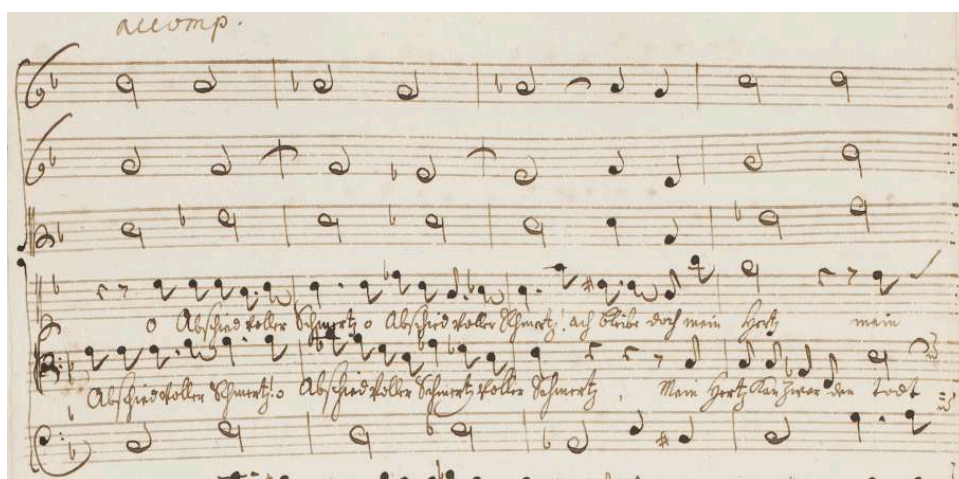 accomp.
o Abschied voller Schmertz o Abschied voller Schmertz! ach bleibe doch mein Hertz mein
Abschied voller Schmertz! o Abschied voller Schmertz voller Schmertz, Mein Hertz kan zwar den todt